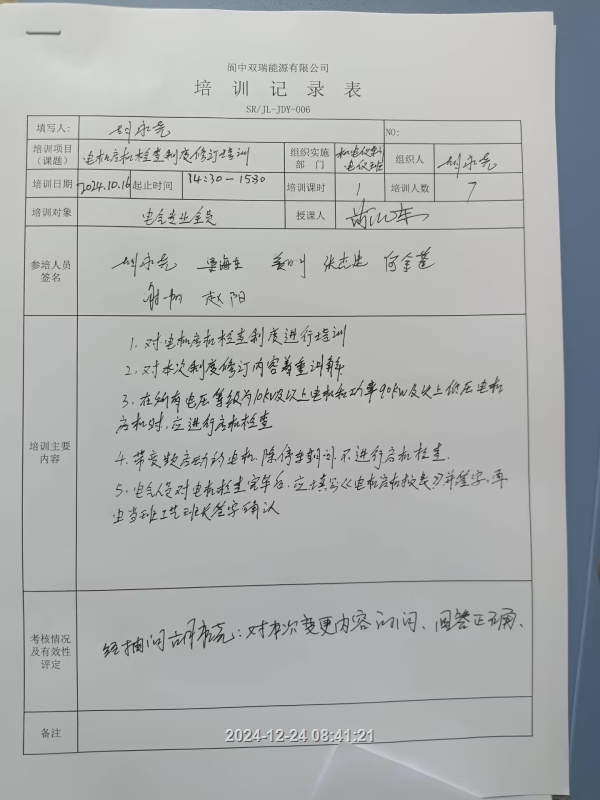 阆中双瑞能源有限公司
培训记录表
SR/JL-JDY-006
填写人: 刘永亮 NO:
培训项目（课题） 电机启机检查制度修订培训 组织实施部门 机电仪车间电仪班 组织人 刘永亮
培训日期 2024.10.16 起止时间 14:30-15:30 培训课时 1 培训人数 7
培训对象 电气专业全员 授课人
参培人员签名 刘永亮 梁海生 姜川 张志忠 何金莲
谢翔 赵阳
培训主要内容
1、对电机启机检查制度进行培训
2、对本次制度修订内容着重讲解
3、在所有电压等级为10kV及以上电机和功率90kW及以上低压电机
启机时,应进行启机检查
4、带变频启动的电机,除停车期间,不进行启机检查.
5、电气人员对电机检查完毕后,应填写《电机启机报表》并签字,再
由当班工艺班长签字确认
考核情况及有效性评定
经抽问 : 对本次变更内容 问、回答正确、
备注
2024-12-24 08:41:21